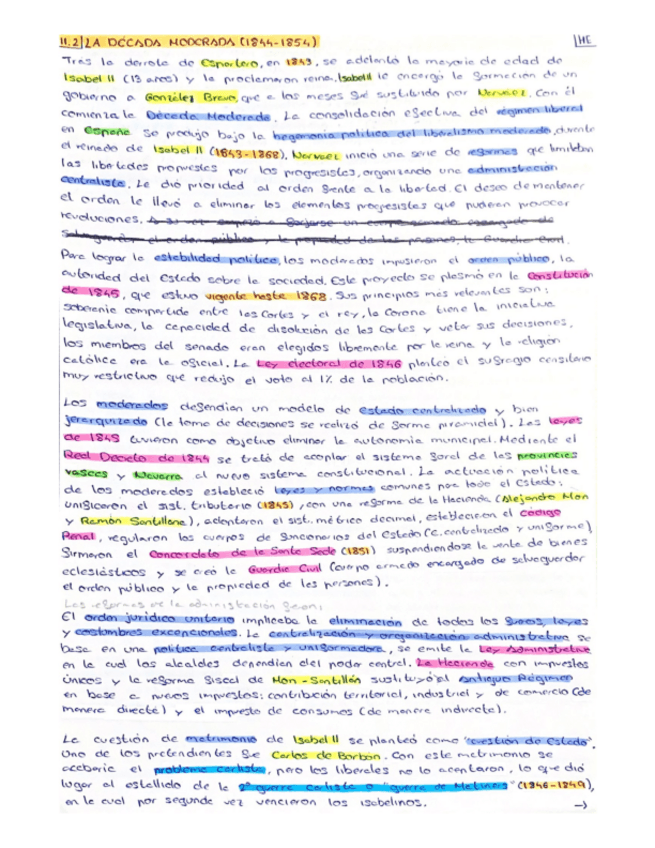 11.2 LA DÉCADA MODERADA (1844-1854) HE
Tras la derrota de Espartero, en 1843, se adelantó la mayoría de edad de
Isabel II (13 años) y la proclamaron reina. Isabel II le encargó la formación de un
gobierno a González Bravo, que a los meses fue sustituido por Narvaez. Con él
comienza la Década Moderada. La consolidación efectiva del régimen liberal
en España se produjo bajo la hegemonía política del liberalismo moderado, durante
el reinado de Isabel II (1843-1868), Narvaez inició una serie de reformas que limitaban
las libertades propuestas por los progresistas, organizando una administración
centralista. Le dió prioridad al orden frente a la libertad. El deseo de mantener
el orden le llevó a eliminar los elementos progresistas que pudieran provocar
revoluciones.
Para lograr la estabilidad política, los moderados impusieron el orden público, la
autoridad del Estado sobre la sociedad. Este proyecto se plasmó en la Constitución
de 1845, que estuvo vigente hasta 1868. Sus principios más relevantes son:
soberanía compartida entre las Cortes y el rey, la Corona tiene la iniciativa
legislativa, la capacidad de disolución de las Cortes y vetar sus decisiones,
los miembros del senado eran elegidos libremente por la reina y la religión
católica era la oficial. La Ley electoral de 1846 planteó el sufragio censitario
muy restrictivo que redujo el voto al 1% de la población.
Los moderados defendían un modelo de estado centralizado y bien
jerarquizado (la toma de decisiones se realizó de forma piramidal). Las leyes
de 1845 tuvieron como objetivo eliminar la autonomía municipal. Mediante el
Real Decreto de 1844 se trató de acoplar el sistema foral de las provincias
vascas y Navarra al nuevo sistema constitucional. La actuación política
de los moderados estableció leyes y normas comunes para todo el Estado:
unificaron el sist. tributario (1845), con una reforma de la Hacienda (Alejandro Mon
y Ramón Santillana), adoptaron el sist. métrico decimal, establecieron el código
Penal, regularon los cuerpos de funcionarios del Estado (c. centralizado y uniforme)
firmaron el Concordato de la Santa Sede (1851) suspendiendose la venta de bienes
eclesiásticos y se creó la Guardia Civil (cuerpo armado encargado de salvaguardar
el orden público y la propiedad de las personas).
Las reformas de la administración fueron:
El orden jurídico unitario implicaba la eliminación de todos los fueros, leyes
y costumbres excepcionales. La centralización y organización administrativa se
basa en una política centralista y uniformadora, se emite la Ley Administrativa
en la cual los alcaldes dependían del poder central. La Hacienda con impuestos
únicos y la reforma fiscal de Mon-Santillán sustituyó al Antiguo Régimen
en base a nuevos impuestos: contribución territorial, industrial y de comercio (de
manera directa) y el impuesto de consumos (de manera indirecta).
La cuestión de matrimonio de Isabel II se planteó como "cuestión de Estado".
Uno de los pretendientes fue Carlos de Borbón. Con este matrimonio se
acabaría el problema carlista, pero los liberales no lo aceptaron, lo que dió
lugar al estallido de la 2ª guerra carlista o "guerra de Matiners" (1846-1849),
en la cual por segunda vez vencieron los isabelinos. →